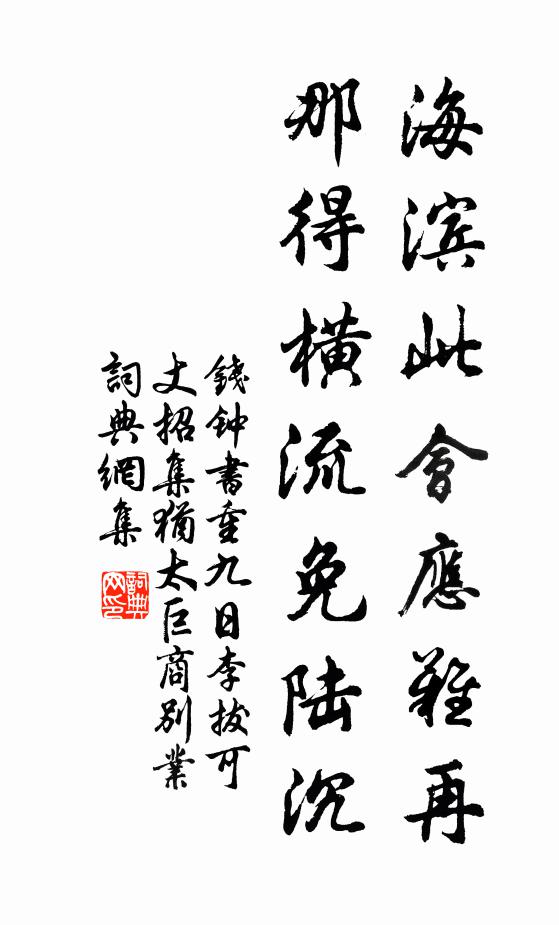 海滨此會應難再
那得橫流免陆沉
錢钟書重九日李拔可
丈招集猶太巨商别業
詞典網集
詞典
网印